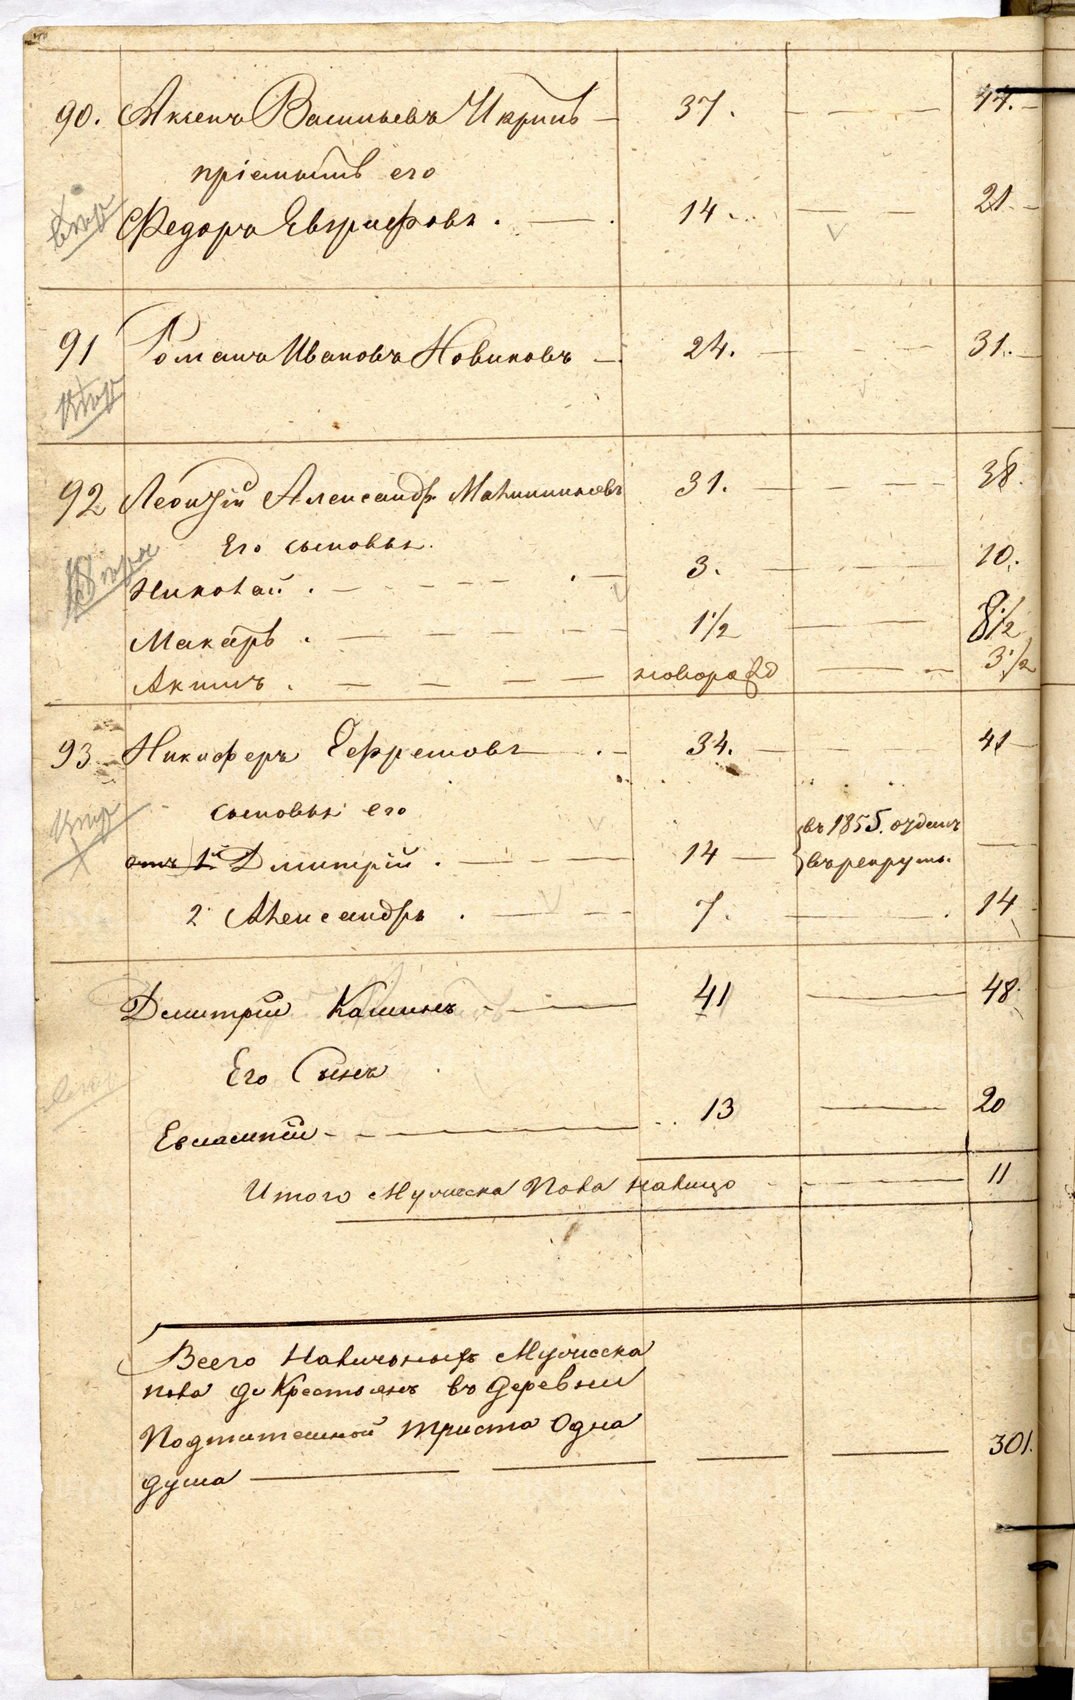 90. Аксенъ Васильевъ Икринъ — 37. — — — 44. —
пріемышъ его
Федоръ Евграфовъ . — . 14 — — — 21. —
91 Романъ Ивановъ Новиковъ — 24. — — — 31. —
92 Леонтій Александр 31. — — — — 38.
Его сыновья.
Николай . — — — — . — 3. — — — 10.
Макаръ . — — — — — 1 1/2 — — 8 1/2
Акимъ . — — — — новорожд — — 3 1/2
93 Никиферъ Ефремовъ — . — 34. — — 41 —
сыновья его
въ 1855. отданъ
1й Дмитрій . — — — 14 — въ рекруты. —
2 Александръ . — — — 7. — . 14
Дмитрій Кашинъ — — 41 — — 48.
Его Сынъ
Евлампій — — — 13 — — 20
Итого Мужеска Пола налицо — — — — 11
Всего Наличныхъ Мужеска
пола Крестьянъ въ деревни
триста Одна
душа — — — — — 301.